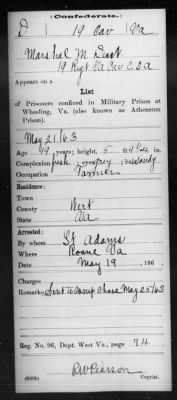 (Confederate.)
D 19 Cav Va
Marshal M Dent
19 Regt Va Cav C.S.A
Appears on a
List
of Prisoners confined in Military Prison at
Wheeling, Va. (also known as Atheneum
Prison).
May 21/63
Age 19 years; height, 5 ft 9 1/2 in.
Complexion fresh; eyes grey; hair sandy
Occupation Farmer
Residence:
Town
County Wert
State Va
Arrested:
By whom Lt Adams
Where Roane Va
Date May 19, 186 .
Charges
Remarks: Sent to Camp Chase May 25/63
Reg. No. 96, Dept. West Va., page 74
Copyist.